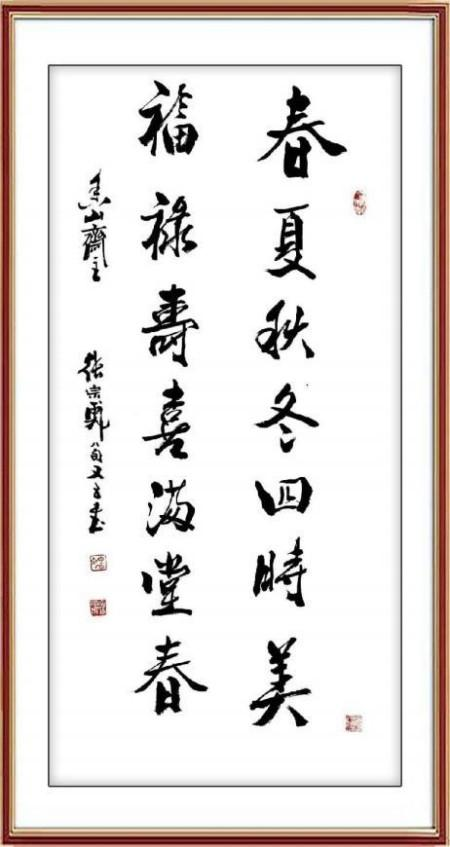 春夏秋冬四時美
福祿壽喜滿堂春
山齋主
張宗 八旬又